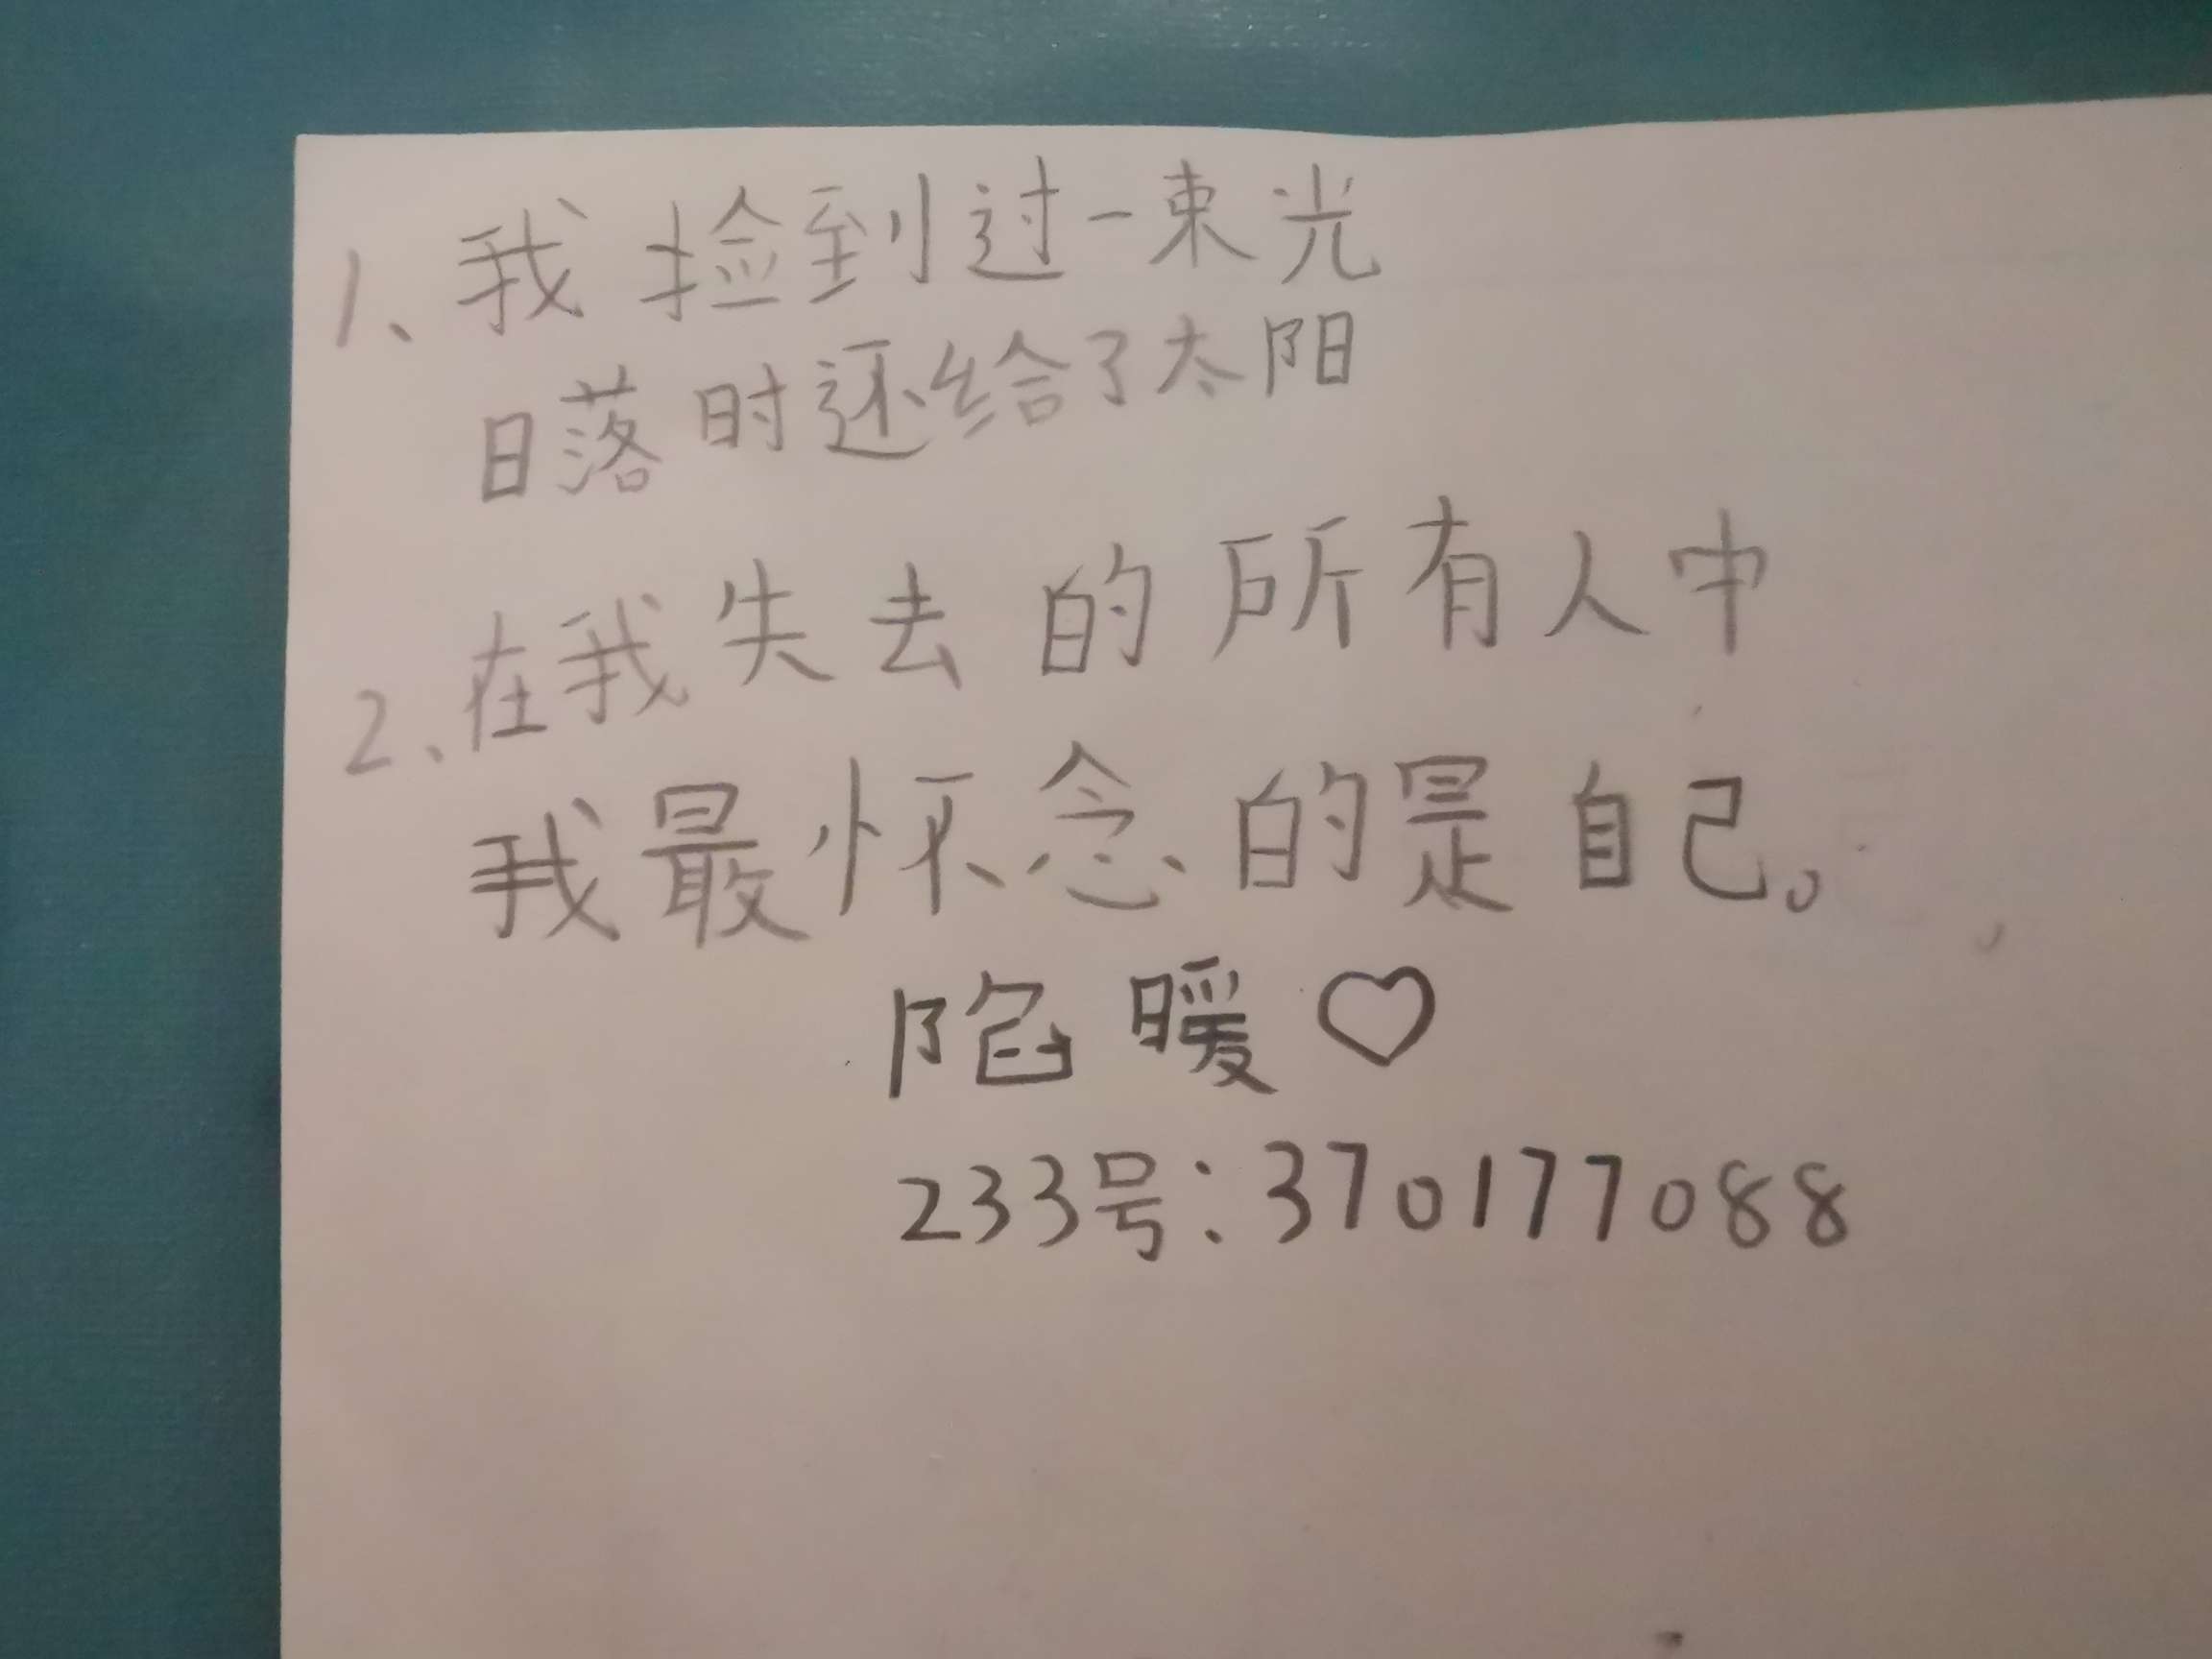 1、我捡到过一束光
日落时还给了太阳
2、在我失去的所有人中
我最怀念的是自己。
陷暖♡
233号:370177088